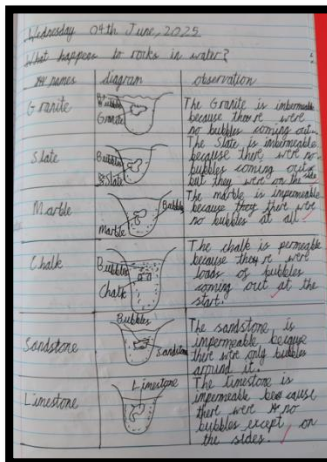 Wednesday 04th June, 2025
What happens to rocks in water?
names diagram observation
Granite
Granite
The Granite is imbermeable
because there were
no bubbles coming out.
Slate
Bubbles
Slate
The Slate is imbermeable
because there were no
bubbles coming out
but they were on the side
Marble
Bubbles
Marble
The marble is impermeable
because they there were
no bubbles at all.
Chalk
Bubbles
Chalk
The chalk is permeable
because they're were
loads of bubbles
coming out at the
start.
Sandstone
Bubbles
Sandstone
The sandstone is
impermeable because
there were only bubbles
around it.
Limestone
Limestone
The limestone is
impermeable because
there were no
bubbles except on
the sides.